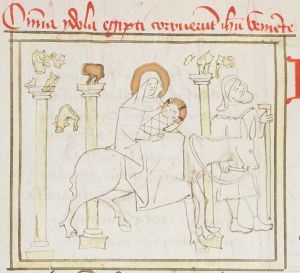 Omnia ydola egipti corruerunt ihu veniente